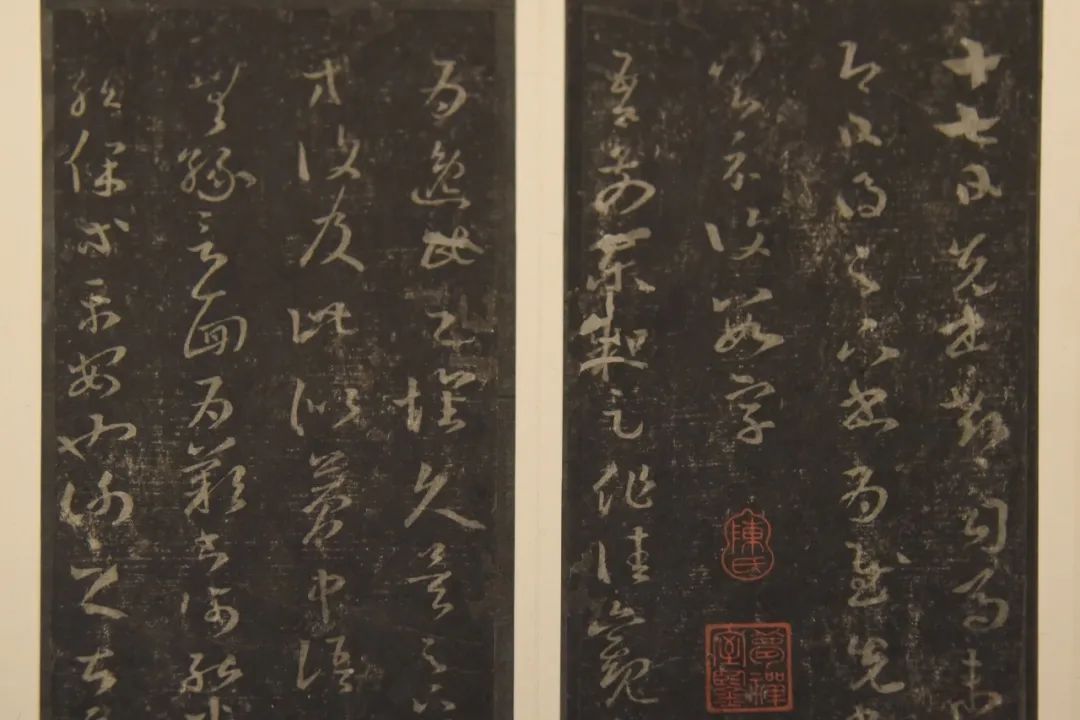 十七日先書郗司馬未
即日得足下書為慰先
以具示復數字
陳氏
夢禪室鑒
吾前東粗足作佳觀
為逸民之懷久矣足下
方復及此似夢中語
無緣言面為歎書何能
龍保等平安也謝之甚